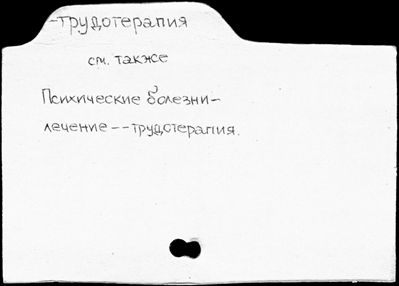 -трудотерапия
см. также
Психические болезни-
лечение--трудотерапия.